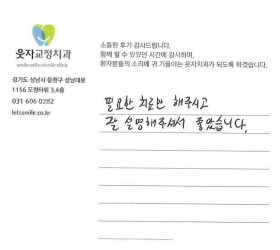 소중한 후기 감사드립니다.
함께 할 수 있었던 시간에 감사하며,
환자분들의 소리에 귀 기울이는 웃자치과가 되도록 하겠습니다.
웃자교정치과
smile orthodontic clinic
경기도 성남시 중원구 성남대로
1156 도원타워 3,4층
031 606 0282
letssmile.co.kr
필요한 치료만 해주시고
잘 설명해주셔서 좋았습니다.